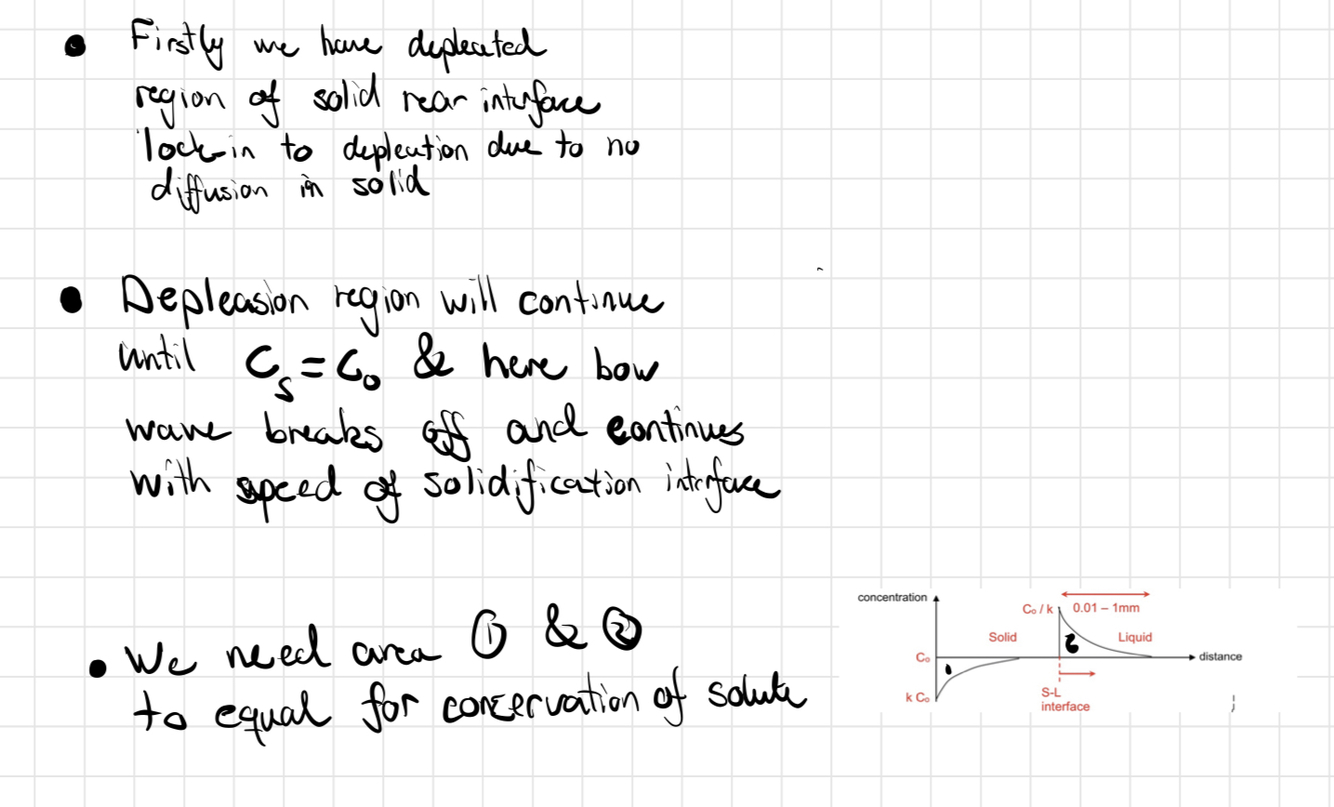 • Firstly we have depleated
region of solid rear interface
lock-in to depleation due to no
diffusion in solid
• Depleasion region will continue
until Cs = Co & here bow
wave breaks off and continues
with speed of solidification interface
• We need area ① & ②
to equal for conservation of solute
concentration
Co / k
0.01 – 1mm
Solid
Liquid
Co
distance
k Co
S-L
interface